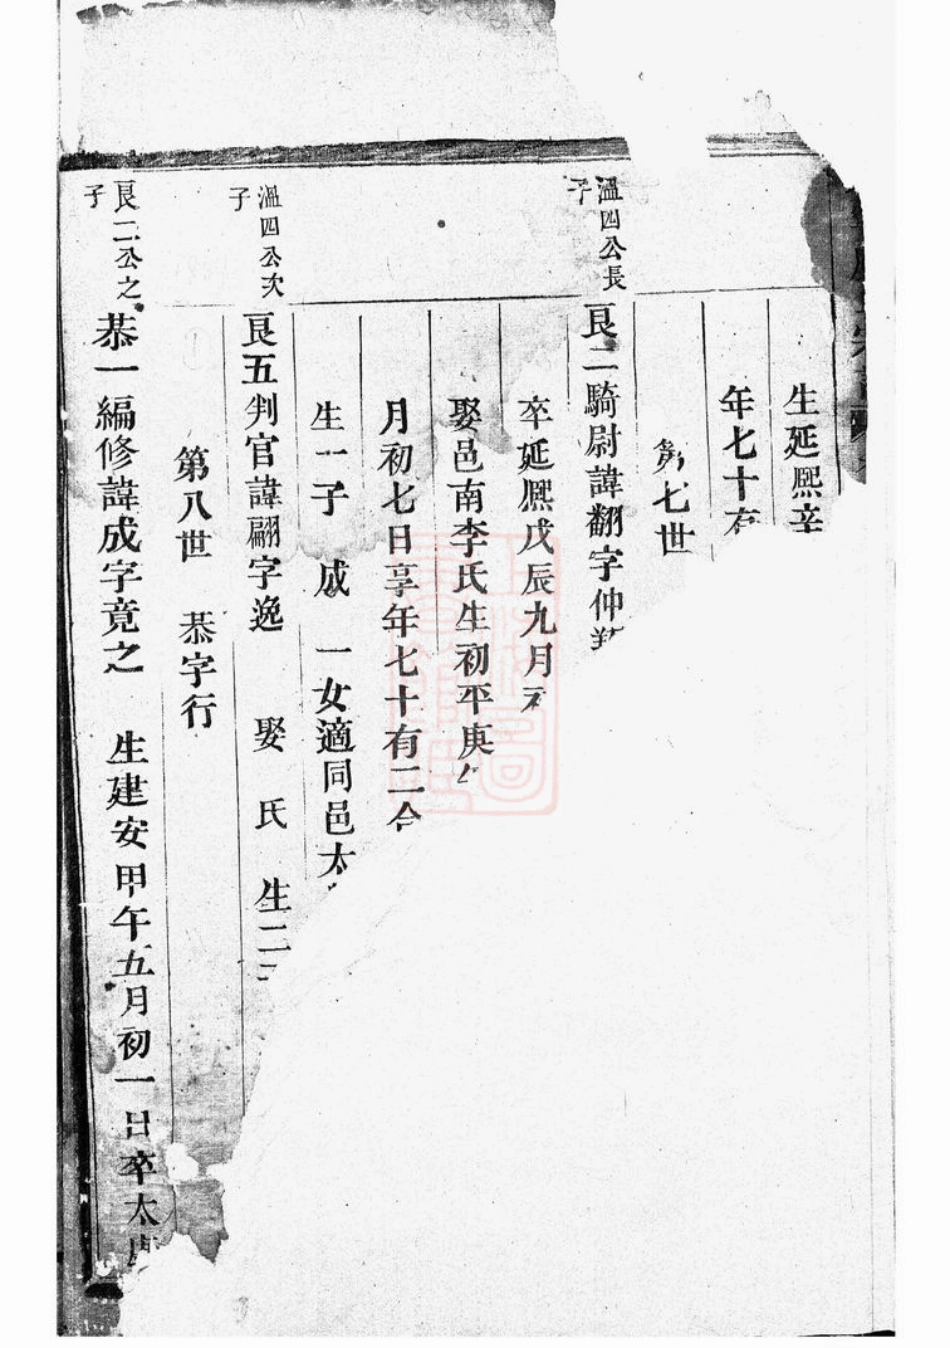 生延熙辛
年七十有
第七世
溫四公長子
艮二騎尉諱翻字仲
卒延熙戊辰九月
娶邑南李氏生初平庚
月初七日享年七十有二合
生一子 成 一女適同邑太
溫四公次子
艮五判官諱翮字逸 娶 氏 生二
第八世 恭字行
艮二公之子
恭一編修諱成字竟之 生建安甲午五月初一日卒太康